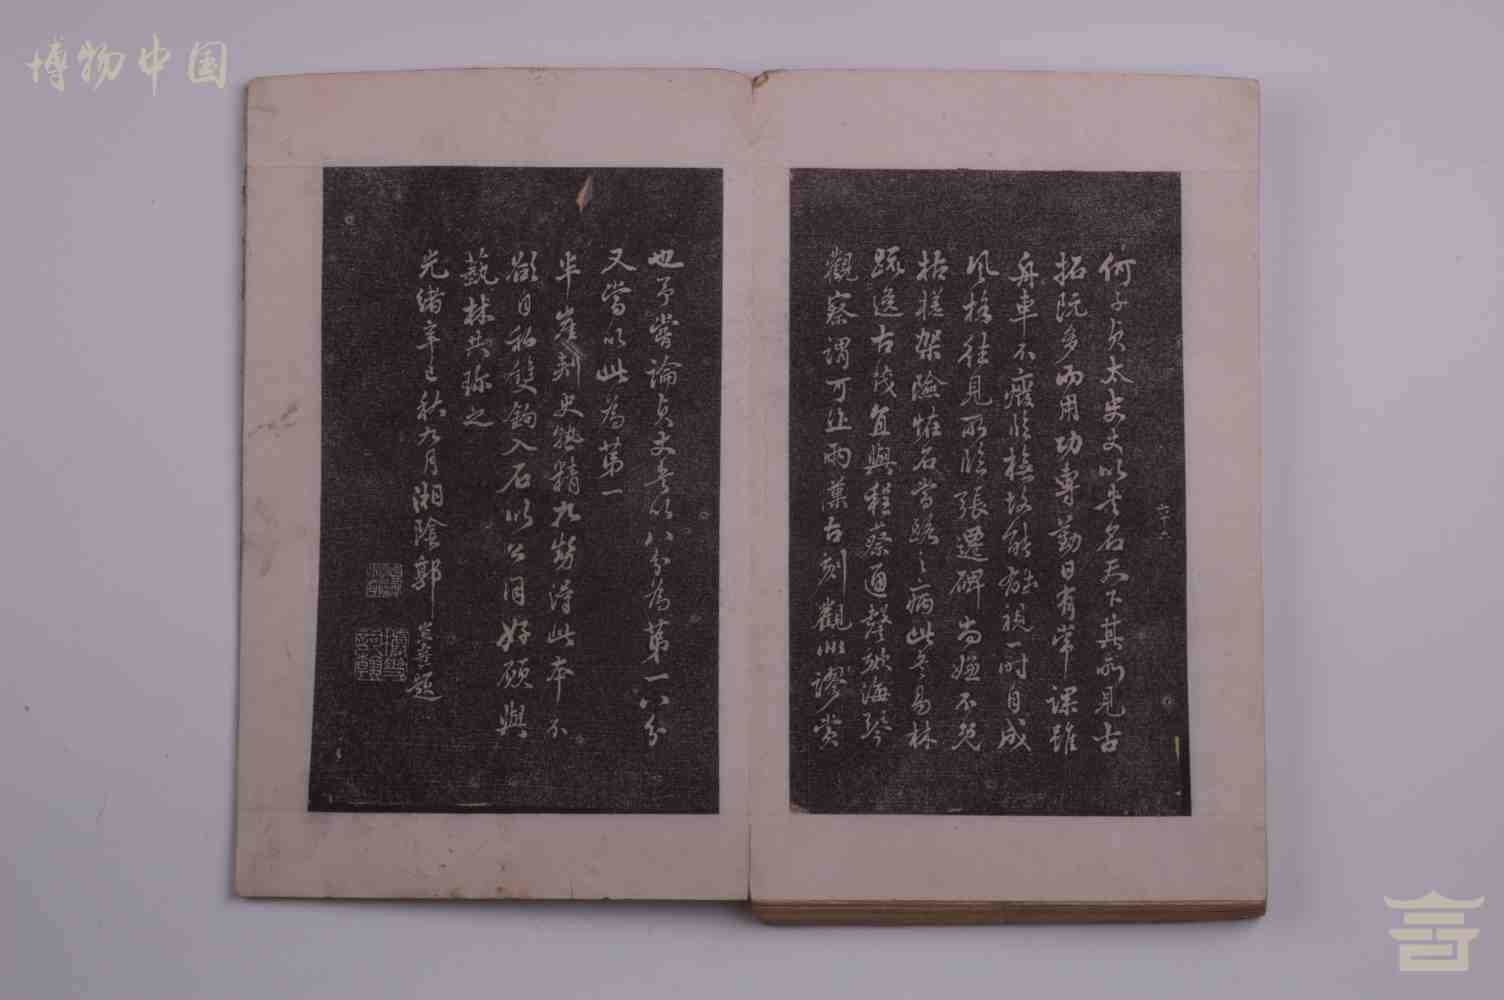 博物中国
何子貞太史丈以書名天下其所見古
拓既多而用功專勤日有常課雖
舟車不廢臨橅故能雄視一時自成
風格往見所臨張遷碑尚嫌不免
枯槎架險怪石當路之病此書易林
疏逸古茂直與程蔡通聲欬海琴
觀察謂可並兩漢古刻觀洵謬賞
六十六
也予嘗論貞丈書以八分為第一八分
又當以此為第一
半崖刻史執精於勢得此本不
欲自私雙鉤入石以公同好願與
藝林共珍之
光緒辛巳秋九月湘陰郭
崇燾題